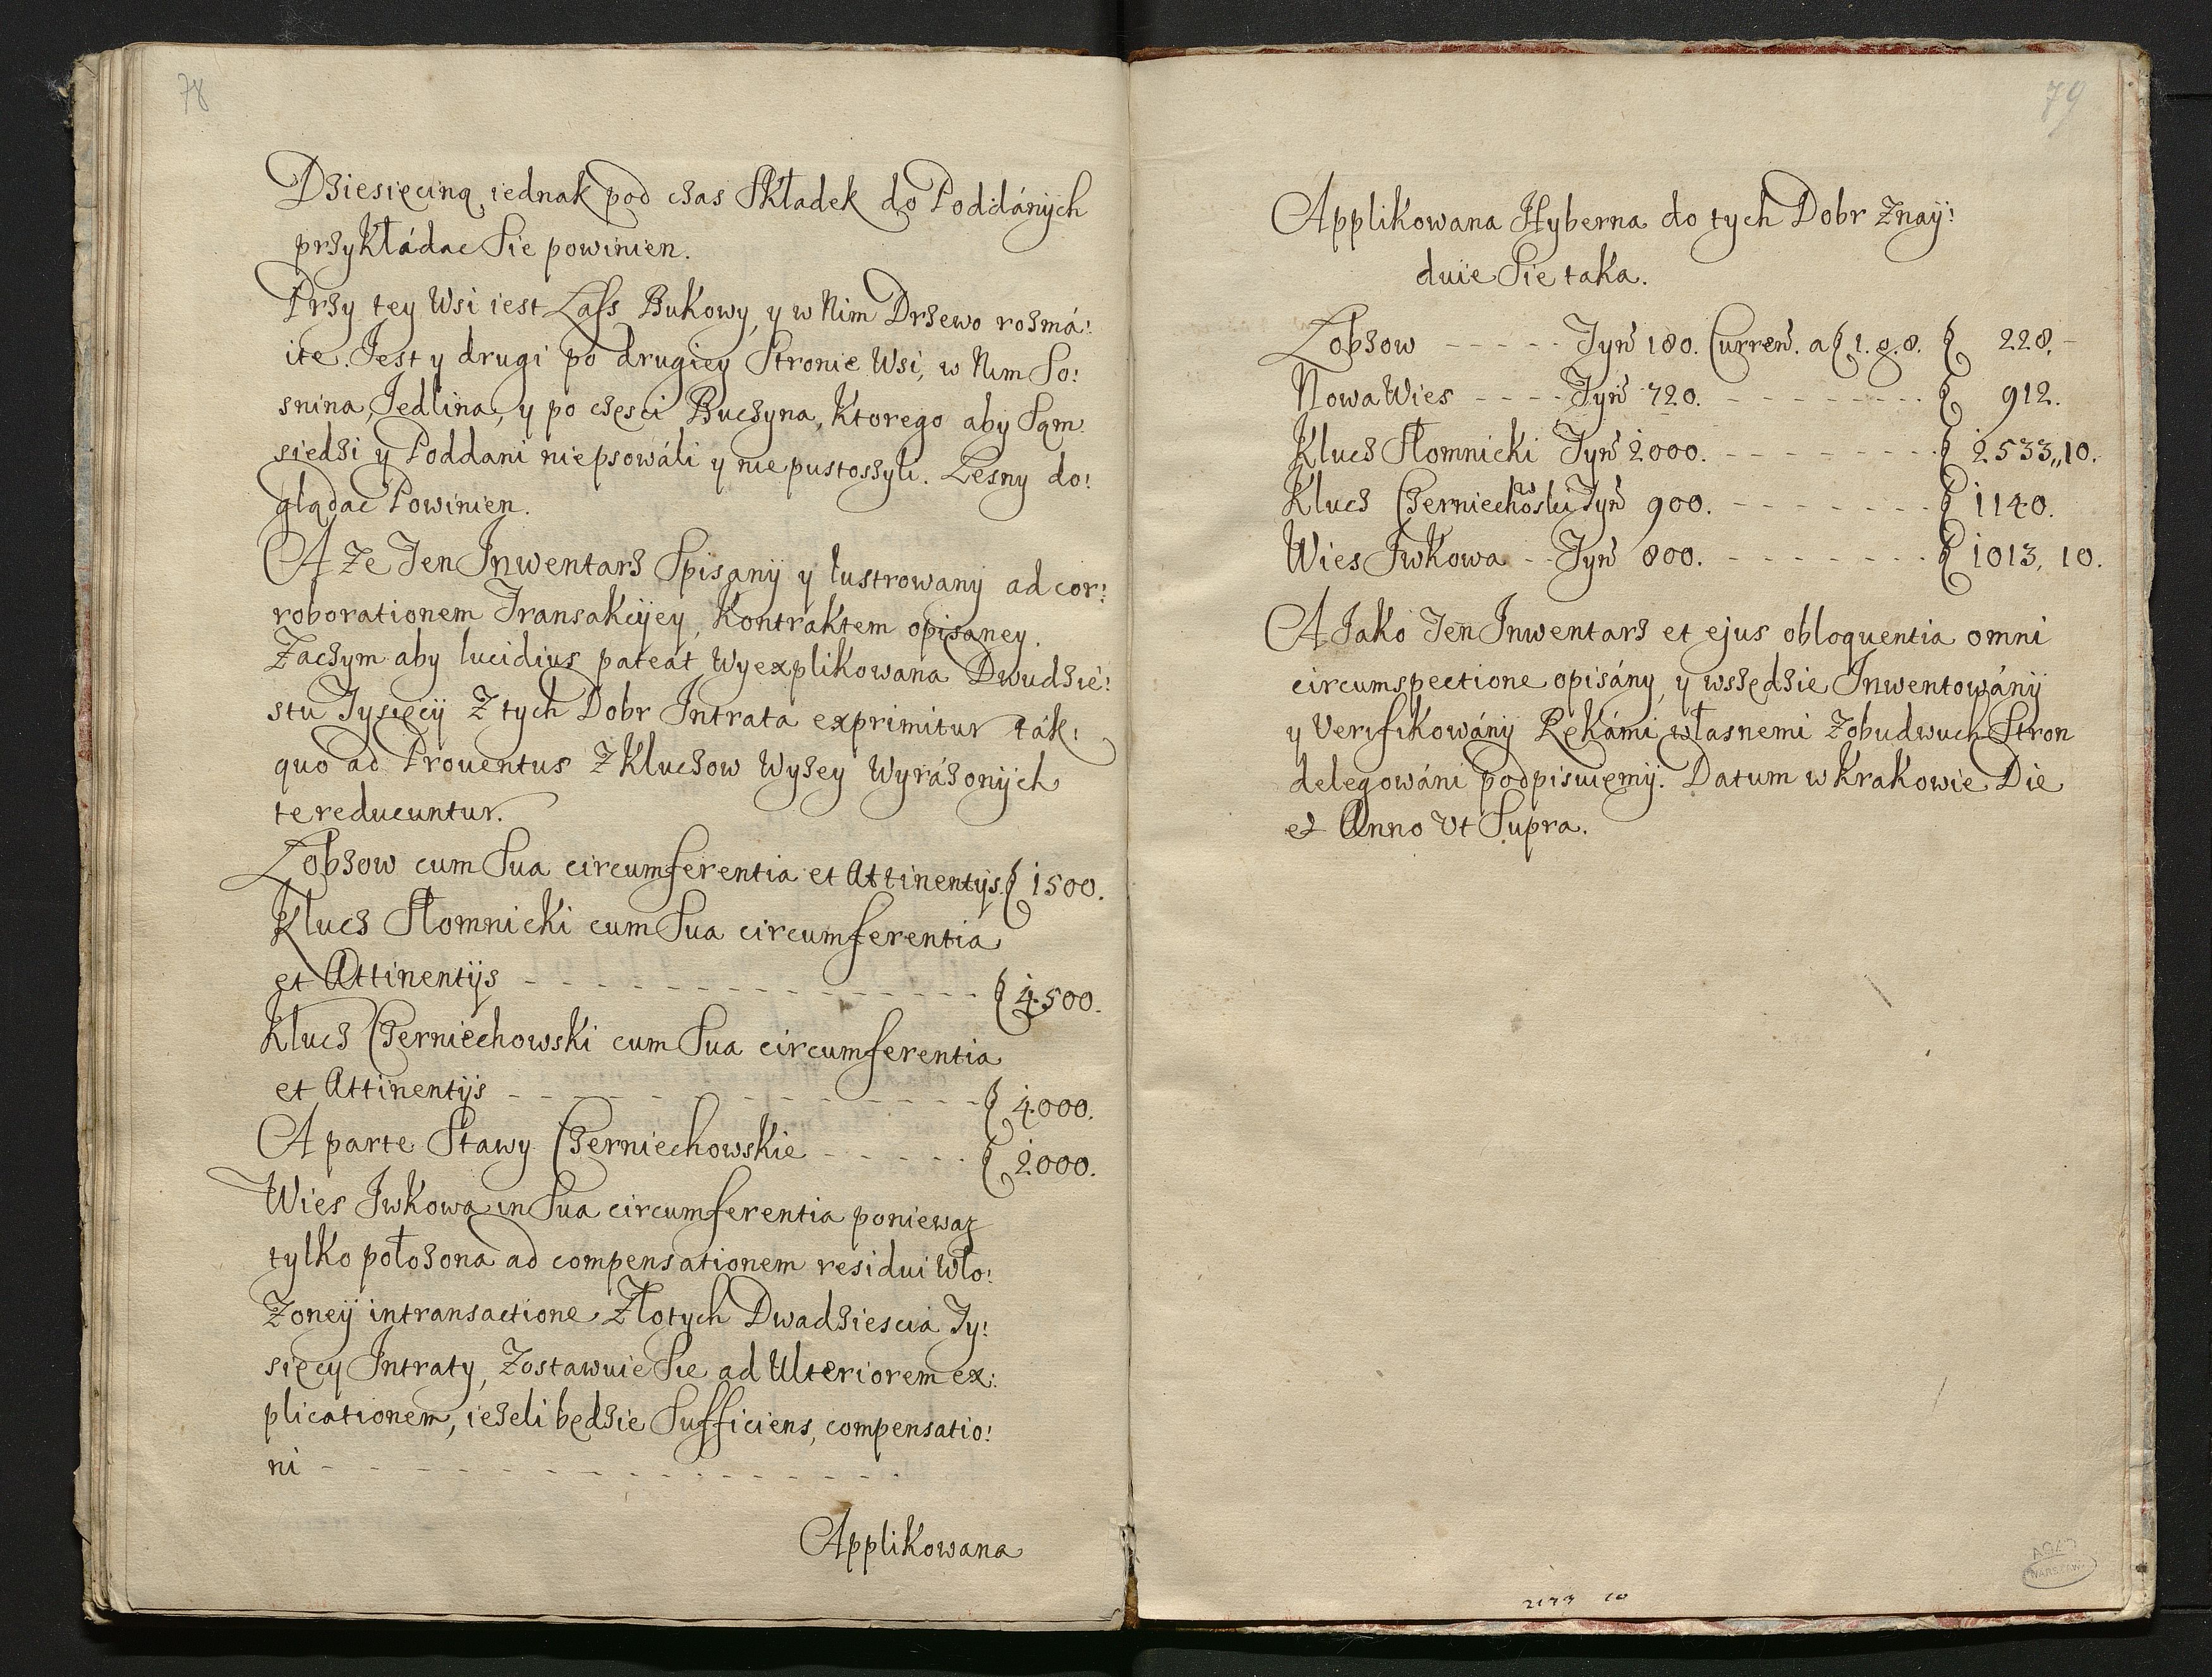 78
Dziesięciną, iednak pod czas Składek do Poddánÿch
przykłádac Sie powinien.
Przy tey Wsi iest Lass Bukowy, y w Nim Drzewo rozmá:
ite. Jest y drugi po drugiey Stronie Wsi, w Nim So:
snina, Jedlina, y po części Buczyna, Ktorego aby Sąm
siedzi y Poddani niepsowáli y nie pustoszyli. Lesny do:
glądac Powinien.
A Ze Ten Inwentarz Spisanÿ y lustrowany ad cor:
roborationem Transakcÿey, Kontraktem opisaney.
Zaczym aby lucidius pateat Wyexplikowana Dwudzie:
stu Tysięcÿ Z tych Dobr Intrata exprimitur ták:
quo ad Prouentus Z Kluczow Wyżey Wyrážonÿch
te reducuntur.
Lobzow cum Sua circumferentia et Attinentÿs. f 1500.
Klucz Słomnicki cum Sua circumferentia
et Attinentÿs - - - - - - - - - - - - - - - f 4500.
Klucz Czerniechowski cum Sua circumferentia
et Attinentÿs - - - - - - - - - - - - - - - f 4000.
A parte Stawy Czerniechowskie - - - - - f 2000.
Wies Iwkowa in Sua circumferentia poniewaz
tylko położona ad compensationem residui Wło:
Zoneÿ in transactione Złotych Dwadziescia Ty:
sięcy Intraty, Zostawuie Sie ad Ulteriorem ex:
plicationem, ieżeli będzie Sufficiens, compensatio:
ni - - - - - - - - - - - - - - - -
Applikowana
79
Applikowana Hyberna do tych Dobr Znaÿ:
duie Sie taka.
Lobzow - - - - - Tyn 180. Curren. a f 1. g. 8. f 228. -
Nowa Wies - - - - Tyn 720. - - - - - - - - - f 912.
Klucz Słomnicki Tyn 2000. - - - - - - - - f 2533,,10.
Klucz Czerniechowski Tyn 900. - - - - - - - f 1140.
Wies Iwkowa - - Tyn 800. - - - - - - - - f 1013, 10.
A Iako Ten Inwentarz et ejus obloquentia omni
circumspectione opisány, y wszędzie Inwentowánÿ
y Verifikowánÿ Rękámi własnemi Zobudwuch Stron
delegowáni podpisuiemÿ. Datum w Krakowie Die
et Anno Ut Supra.
AGAD
WARSZAWA